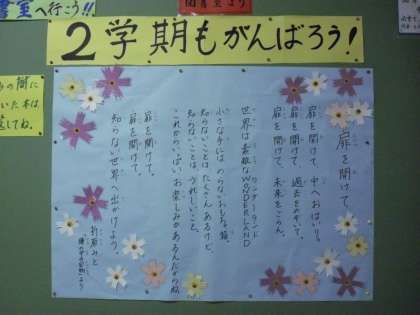 書室へ行こう!!
図書室より
2学期もがんばろう!
扉を開けて
扉を開けて、中へおはいり。
扉を開けて、過去をのぞいて、
扉を開けて、未来をごらん。
世界は素敵なWONDERLAND
ワンダーランド
小さな手にはのらない、おもちゃ箱。
知らないことはたくさんあるけど、
知らないことは、うれしいこと。
これからいっぱいお楽しみがあるんだから
扉を開けて。
扉を開けて、
知らない世界へ出かけよう。
折原みと
より
いた本は、
してね。